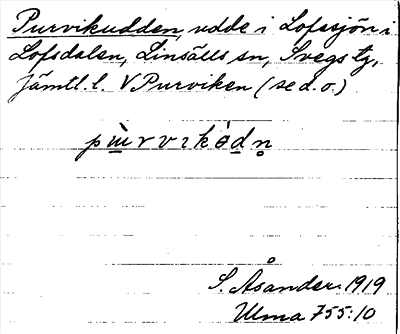 Purvikudden, udde i Lofssjön i
Lofsdalen, Linsälls sn, Svegs tg,
Jämtl. l. V Purviken (se d. o.)
pɯ̀rvɩkòdn̥
S. Åsander. 1919
Ulma 755:10